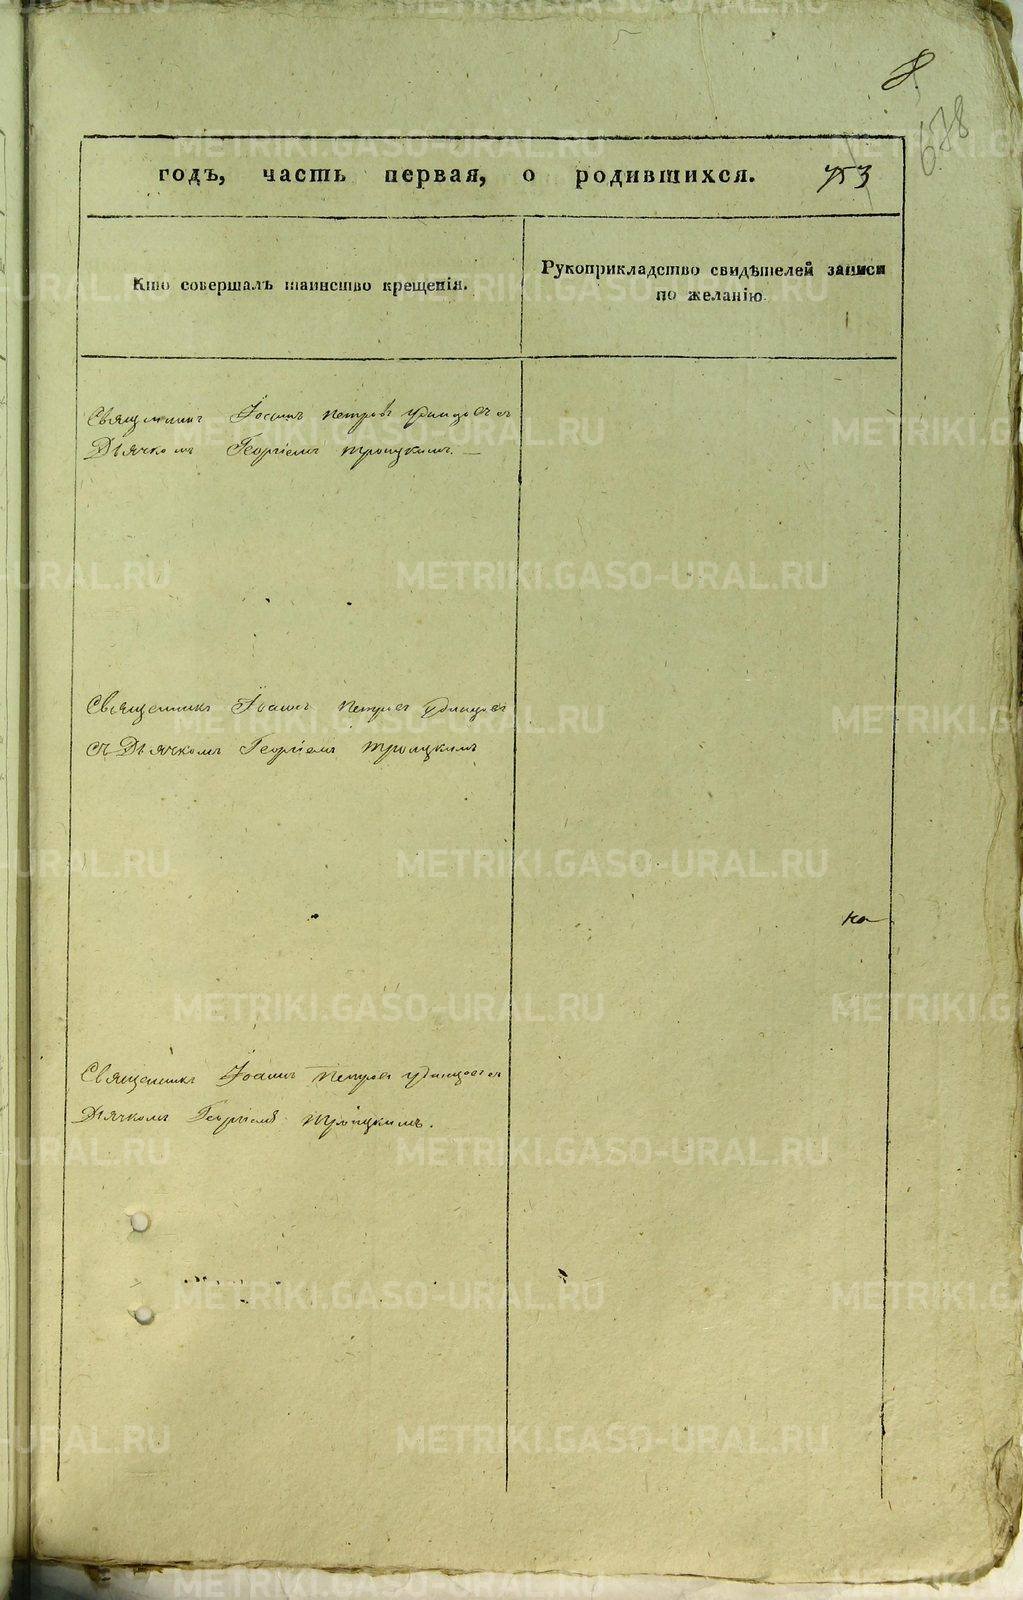 8.
678
годъ, часть первая, о родившихся. 753
Кто совершалъ таинство крещенія.
Рукоприкладство свидѣтелей записи
по желанію.
Священник Іоаннъ Петровъ Удинцовъ съ
Дьячкомъ Георгіемъ Троицкимъ.
Священникъ Іоаннъ Петровъ Удинцовъ
съ Дьячкомъ Георгіемъ Троицкимъ
на
Священникъ Іоаннъ Петровъ Удинцовъ съ
Дьячкомъ Георгіемъ Троицкимъ.
METRIKI.GASO-URAL.RU